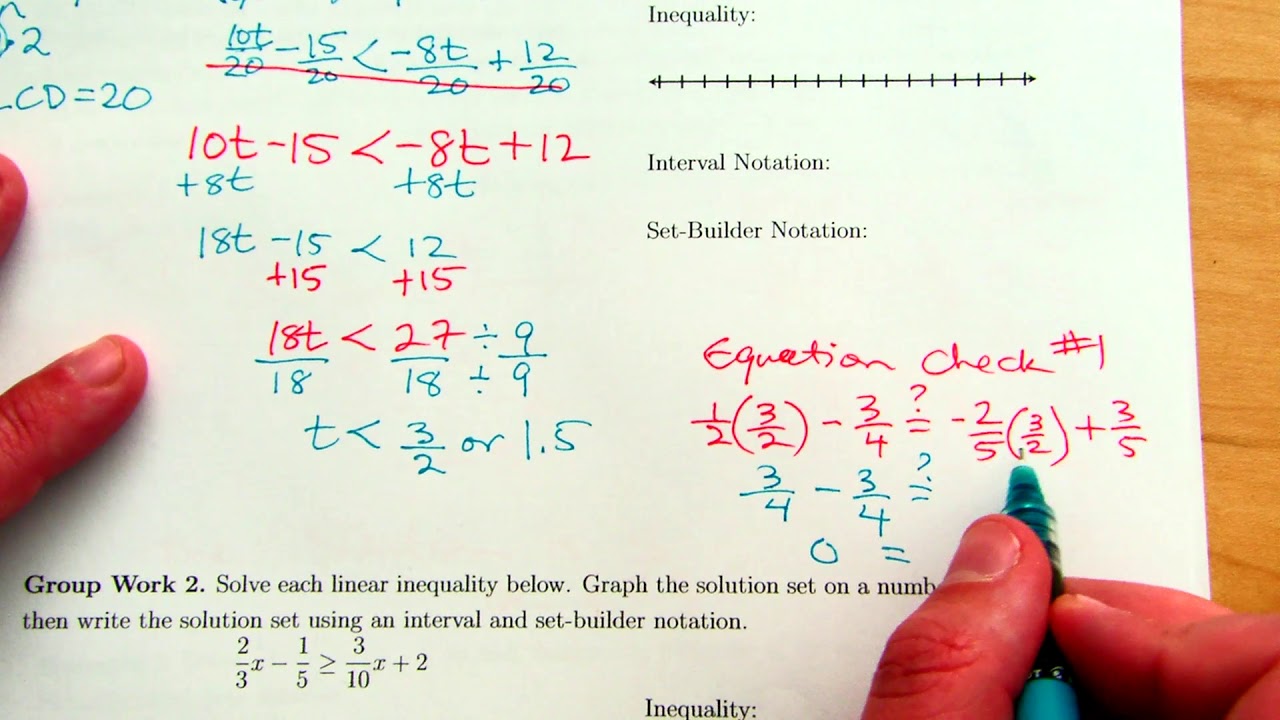 2
LCD=20
10t/20 - 15/20 < -8t/20 + 12/20
10t - 15 < -8t + 12
+8t +8t
18t - 15 < 12
+15 +15
18t/18 < 27/18 ÷ 9/÷ 9
t < 3/2 or 1.5
Inequality:
Interval Notation:
Set-Builder Notation:
Equation Check #1
1/2(3/2) - 3/4 ?= -2/5(3/2) + 3/5
3/4 - 3/4 ?=
0 =
Group Work 2. Solve each linear inequality below. Graph the solution set on a numb
then write the solution set using an interval and set-builder notation.
2/3x - 1/5 ≥ 3/10x + 2
Inequality: